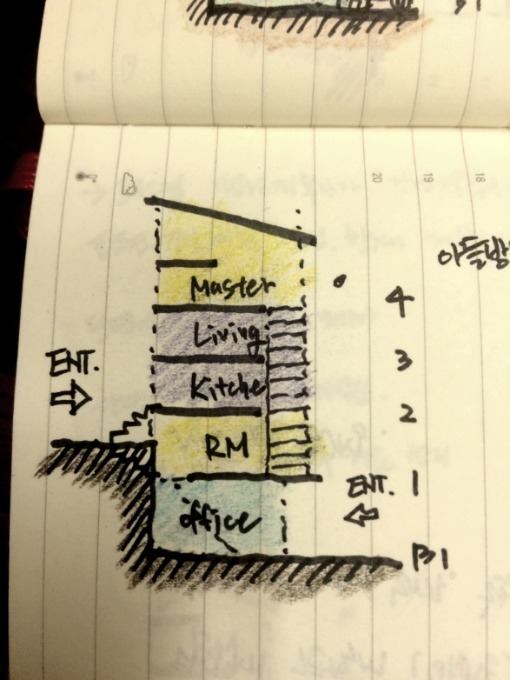 B1
20 19 18
아들방
Master
4
Living
ENT.
3
Kitche
2
RM
ENT. 1
office
B1